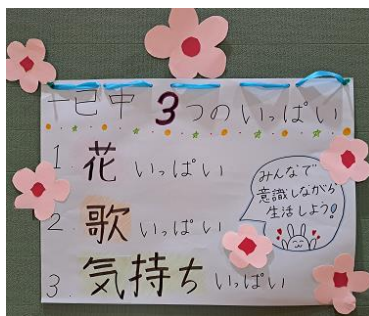 十日中 3つの いっぱい
1. 花 いっぱい
2. 歌 いっぱい
3. 気持ち いっぱい
みんなで
意識しながら
生活しよう!